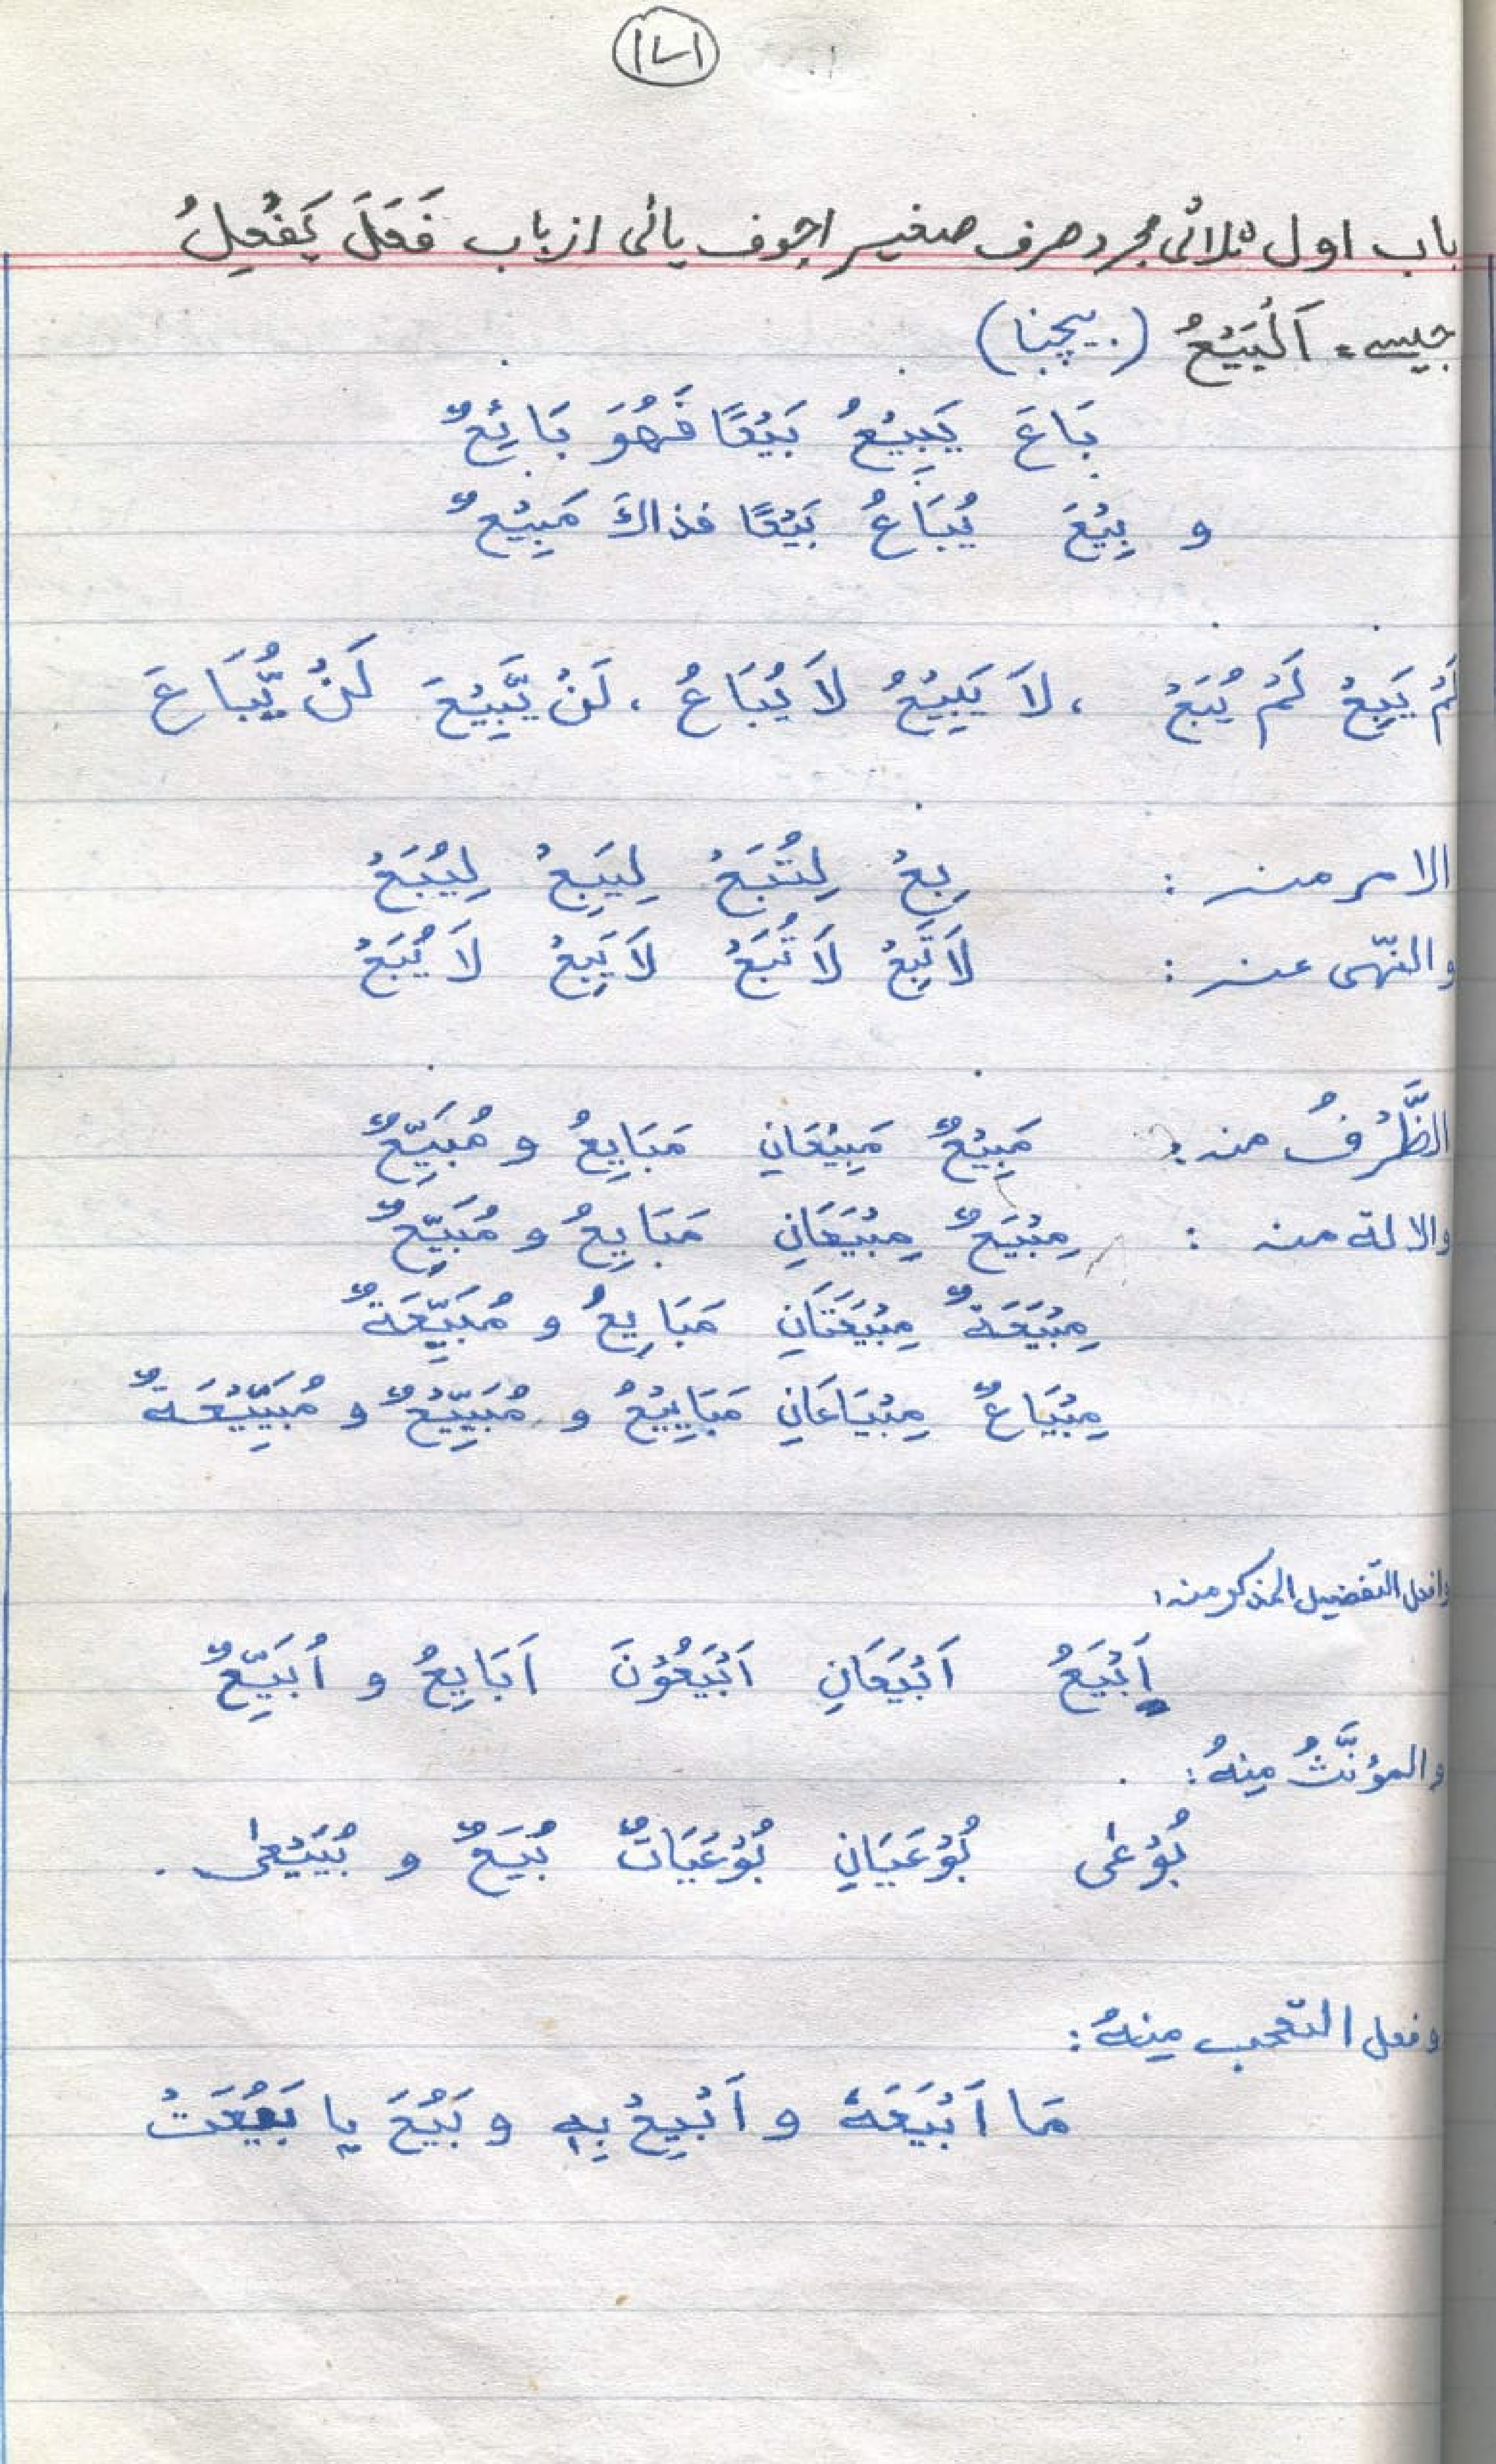 ۱۷۱
باب اول ثلاثی مجرد صرف صغیر اجوف یائی از باب فَعَلَ یَفْعِلُ
جیسے: اَلْبَیْعُ (بیچنا)
بَاعَ یَبِیْعُ بَیْعًا فَهُوَ بَائِعٌ
و بِیْعَ یُبَاعُ بَیْعًا فذاكَ مَبِیْعٌ
لَمْ یَبِعْ لَمْ یُبَعْ ، لاَ یَبِیْعُ لاَ یُبَاعُ ، لَنْ یَّبِیْعَ لَنْ یُّبَاعَ
الامر منه : بِعْ لِتُبَعْ لِیَبِعْ لِیُبَعْ
والنّهی عنه : لاَ تَبِعْ لاَ تُبَعْ لاَ یَبِعْ لاَ یُبَعْ
الظَّرْفُ منه : مَبِیْعٌ مَبِیْعَانِ مَبَایِعُ و مُبَیِّعٌ
والالة منه : مِبْیَعٌ مِبْیَعَانِ مَبَایِعُ و مُبَیِّعٌ
مِبْیَعَةٌ مِبْیَعَتَانِ مَبَایِعُ و مُبَیِّعَةٌ
مِبْیَاعٌ مِبْیَاعَانِ مَبَایِیْعُ و مُبَیِّیْعٌ و مُبَیِّیْعَةٌ
وافعل التفضیل المذکر منه :
اَبْیَعُ اَبْیَعَانِ اَبْیَعُوْنَ اَبَایِعُ و اُبَیِّعٌ
والمؤنَّثُ مِنهُ :
بُوْعٰی بُوْعَیَانِ بُوْعَیَاتٌ بُیَعٌ و بُیَیْعٰی .
وفعل التعجب مِنهُ :
مَا اَبْیَعَهٗ و اَبْیِعْ بِهٖ و بَیُعَ یا بَیُعَتْ